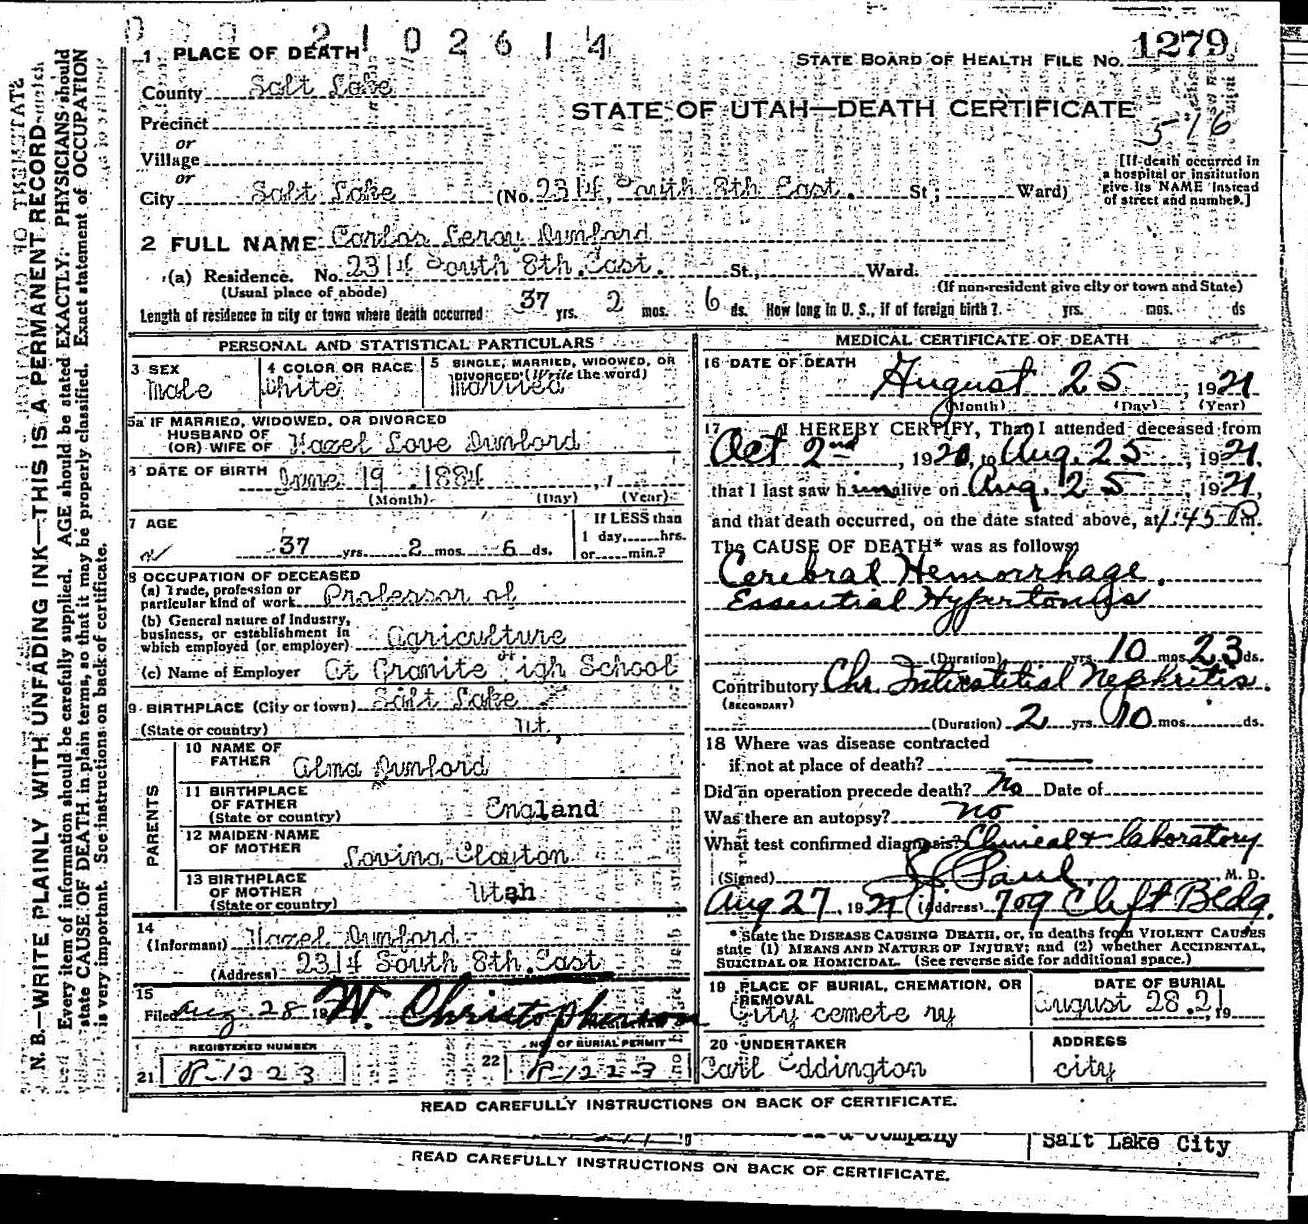 2102614
1 PLACE OF DEATH
STATE BOARD OF HEALTH FILE No. 1279
County Salt Lake
STATE OF UTAH—DEATH CERTIFICATE
516
Precinct
or
Village
or
City Salt Lake (No. 2314 South 8th East. St; Ward)
[If death occurred in a hospital or institution give its NAME instead of street and number.]
2 FULL NAME Carlos Leroy Dunford
(a) Residence. No. 2314 South 8th East. St., Ward.
(Usual place of abode) (If non-resident give city or town and State)
Length of residence in city or town where death occurred 37 yrs. 2 mos. 6 ds. How long in U. S., if of foreign birth? yrs. mos. ds
PERSONAL AND STATISTICAL PARTICULARS
3 SEX Male
4 COLOR OR RACE White
5 SINGLE, MARRIED, WIDOWED, OR DIVORCED (Write the word) Married
5a IF MARRIED, WIDOWED, OR DIVORCED
HUSBAND OF
(OR) WIFE OF Hazel Love Dunford
6 DATE OF BIRTH June 19 1884
(Month) (Day) (Year)
7 AGE
37 yrs. 2 mos. 6 ds.
If LESS than
1 day, hrs.
or min.?
8 OCCUPATION OF DECEASED
(a) Trade, profession or
particular kind of work Professor of
(b) General nature of Industry,
business, or establishment in
which employed (or employer) Agriculture
(c) Name of Employer At Granite High School
9 BIRTHPLACE (City or town) Salt Lake
(State or country) Ut,
PARENTS
10 NAME OF
FATHER Alma Dunford
11 BIRTHPLACE
OF FATHER
(State or country) England
12 MAIDEN NAME
OF MOTHER Lovina Clayton
13 BIRTHPLACE
OF MOTHER
(State or country) Utah
14
(Informant) Hazel Dunford
(Address) 2314 South 8th East
15
Filed Aug 28 19 W. Christopherson
REGISTERED NUMBER
21 R-1223
NO. OF BURIAL PERMIT
22 R-1223
MEDICAL CERTIFICATE OF DEATH
16 DATE OF DEATH
August 25, 1921
(Month) (Day) (Year)
17 I HEREBY CERTIFY, That I attended deceased from
Oct 2nd, 1920, to Aug. 25, 1921,
that I last saw him alive on Aug. 25, 1921,
and that death occurred, on the date stated above, at 1:45 P.m.
The CAUSE OF DEATH* was as follows:
Cerebral Hemorrhage,
Essential
(Duration) yrs. 10 mos. 23 ds.
Contributory Chr. Interstitial Nephritis.
(SECONDARY)
(Duration) 2 yrs. 10 mos. ds.
18 Where was disease contracted
if not at place of death?
Did an operation precede death? No Date of
Was there an autopsy? no
What test confirmed diagnosis? Clinical & laboratory
(Signed) M. D.
Aug 27, 1921 (Address) 709 Clift Bldg.
*State the DISEASE CAUSING DEATH, or, in deaths from VIOLENT CAUSES
state (1) MEANS AND NATURE OF INJURY; and (2) whether ACCIDENTAL,
SUICIDAL OR HOMICIDAL. (See reverse side for additional space.)
19 PLACE OF BURIAL, CREMATION, OR
REMOVAL
City cemetery
DATE OF BURIAL
August 28.21, 19
20 UNDERTAKER
Carl Eddington
ADDRESS
city
READ CAREFULLY INSTRUCTIONS ON BACK OF CERTIFICATE.
& Company
Salt Lake City
READ CAREFULLY INSTRUCTIONS ON BACK OF CERTIFICATE.
N. B.—WRITE PLAINLY WITH UNFADING INK—THIS IS A PERMANENT RECORD
Every item of information should be carefully supplied. AGE should be stated EXACTLY. PHYSICIANS should
state CAUSE OF DEATH in plain terms, so that it may be properly classified. Exact statement of OCCUPATION
is very important. See instructions on back of certificate.